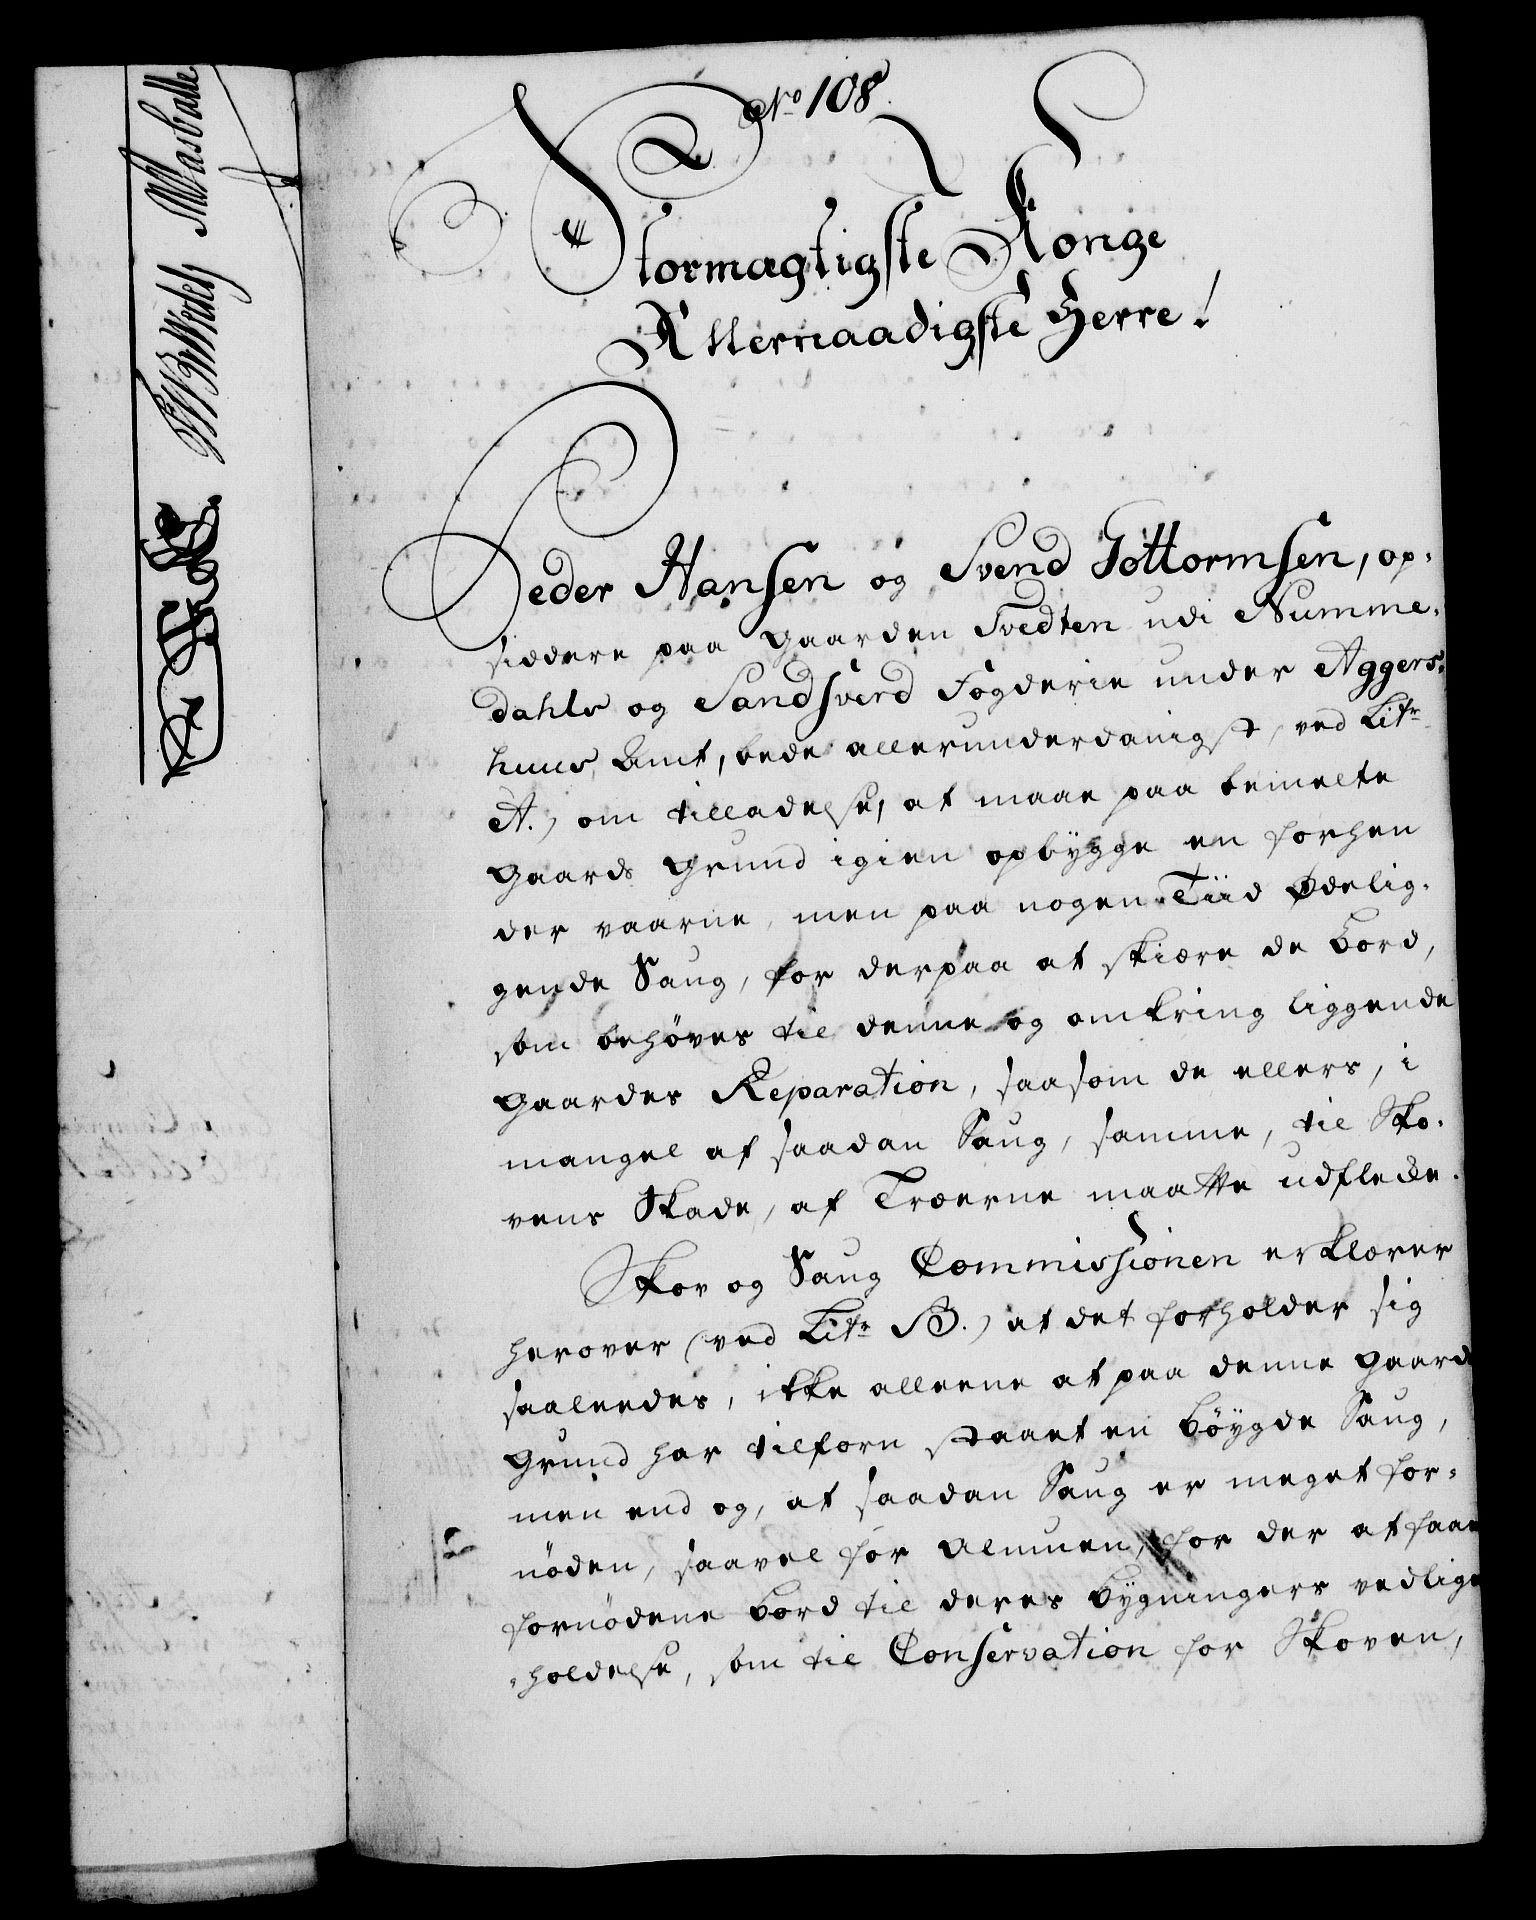 No 108
Stormægtigste Konge
Allernaadigste Herre!
Peder Hansen og Svend Gottormsen, op-
siddere paa gaarden Tvedten udi Numme-
dahls og Sandsverd Fogderie under Aggers-
huus Amt, bede allerunderdanigst, ved Litr
A.) om tilladelse, at maae paa bemelte
gaards grund igien opbygge en forhen
der værne, men paa nogen Tiid Ødelig-
gende Saug, for derpaa at skiære de Bord,
som behøves til denne og omkring liggende
gaardes Reparation, saasom de ellers, i
mangel af saadan Saug, samme, til Sko-
vens Skade, af Træerne maatte udflekke.
Skov og Saug Commissionen erklærer
herover (ved Litr B.) at det forholder sig
saaleedes, ikke alleene at paa denne gaards
grund har tilforn staaet en bøygde Saug,
men end og, at saadan Saug er meget for-
nøden, saavel for Almuen, for der at faae
fornødene Bord til deres bygningers vedlige-
holdelse, som til Conservation for Skoven,